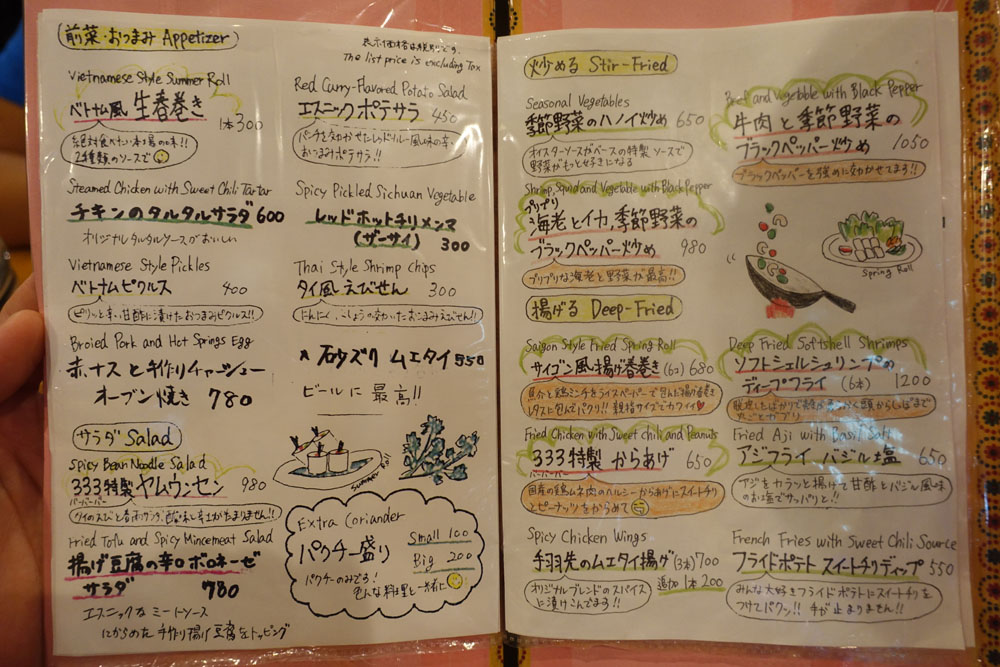 前菜・おつまみ Appetizer
表示価格は税別です。
The list price is excluding Tax
Vietnamese Style Summer Roll
ベトナム風 生春巻き
1本300
絶対食べたい本場の味!!
2種類のソースで
Red Curry-Flavored Potato Salad
エスニック ポテサラ 450
パンチを効かせたレッドカレー風味の辛
おつまみポテサラ!!
Steamed Chicken with Sweet Chili Tartar
チキンのタルタルサラダ 600
オリジナルタルタルソースがおいしい
Spicy Pickled Sichuan Vegetable
レッドホットチリメンマ
(ザーサイ) 300
Vietnamese Style Pickles
ベトナムピクルス 400
ピリッと辛い甘酢に漬けたおつまみピクルス!!
Thai Style Shrimp chips
タイ風えびせん 300
にんにく、こしょうの効いたおつまみえびせん!!
Broied Pork and Hot Springs Egg
赤ナスと手作りチャーシュー
オーブン焼き 780
石ずズリ ムエタイ 550
ビールに最高!!
サラダ Salad
Spicy Bean Noodle Salad
333特製 ヤムウンセン 980
バーバーバー
タイのえびと春雨サラダ、酸味と辛さがたまりません!!
Fried Tofu and Spicy Mincemeat Salad
揚げ豆腐の辛口ボロネーゼ
サラダ 780
エスニックなミートソース
にからめた手作り揚げ豆腐をトッピング
Extra Coriander
パクチー盛り
Small 100
Big 200
パクチーのみです!
色んな料理と一緒に
炒める Stir-Fried
Seasonal Vegetables
季節野菜のハノイ炒め 650
オイスターソースがベースの特製ソースで
野菜がもっと好きになる
Beef and Vegetable with Black Pepper
牛肉と季節野菜の
ブラックペッパー炒め 1050
ブラックペッパーを強めに効かせてます!!
Shrimp, Squid and Vegetable with Black Pepper
プリプリ
海老とイカ,季節野菜の
ブラックペッパー炒め 980
プリプリな海老と野菜が最高!!
Spring Roll
揚げる Deep-Fried
Saigon Style Fried Spring Roll
サイゴン風揚げ春巻き (6コ) 680
魚介と鶏ミンチをライスペーパーで包んだ揚げ春巻き
レタスに包んでパクリ!! 親指サイズでカワイイ♥
Deep Fried Softshell Shrimps
ソフトシェルシュリンプの
ディープフライ (6本) 1200
丸ごとガブリ
Fried Chicken with Sweet chili and Peanuts
333特製 からあげ 650
バーバーバー
国産の鶏ムネ肉のヘルシーからあげにスイートチリ
とピーナッツをからめて
Fried Aji with Basil Salt
アジフライ バジル塩 650
アジをカラッと揚げて甘酢とバジル風味
のお塩でサッパリと!!
Spicy Chicken Wings
手羽先のムエタイ揚げ (3本) 700
追加 1本 200
オリジナルブレンドのスパイス
に漬けこんでます!!
French Fries with Sweet Chili Source
フライドポテト スイートチリディップ 550
みんな大好きフライドポテトにスイートチリを
つけてパクッ!! 手が止まりません!!